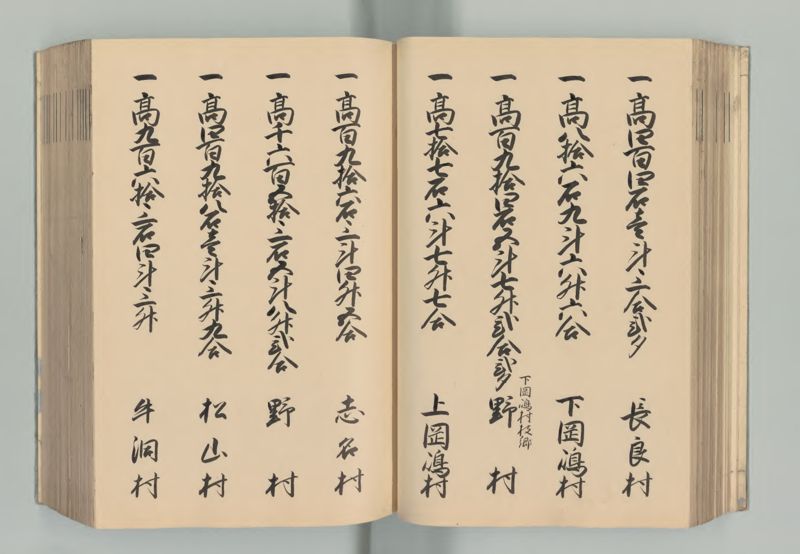 一 高四百四石壱斗三合弐夕 長良村
一 高八拾六石九斗六升六合 下岡嶋村
一 高百九拾四石五斗七升弐合弐夕 野村
下岡嶋村枝郷
一 高七拾七石六斗七升七合 上岡嶋村
一 高百九拾六石三斗四升五合 志名村
一 高千六百五拾三石五斗八升弐合 野村
一 高四百九拾八石壱斗三升九合 松山村
一 高九百六拾三石四斗三升 牛洞村